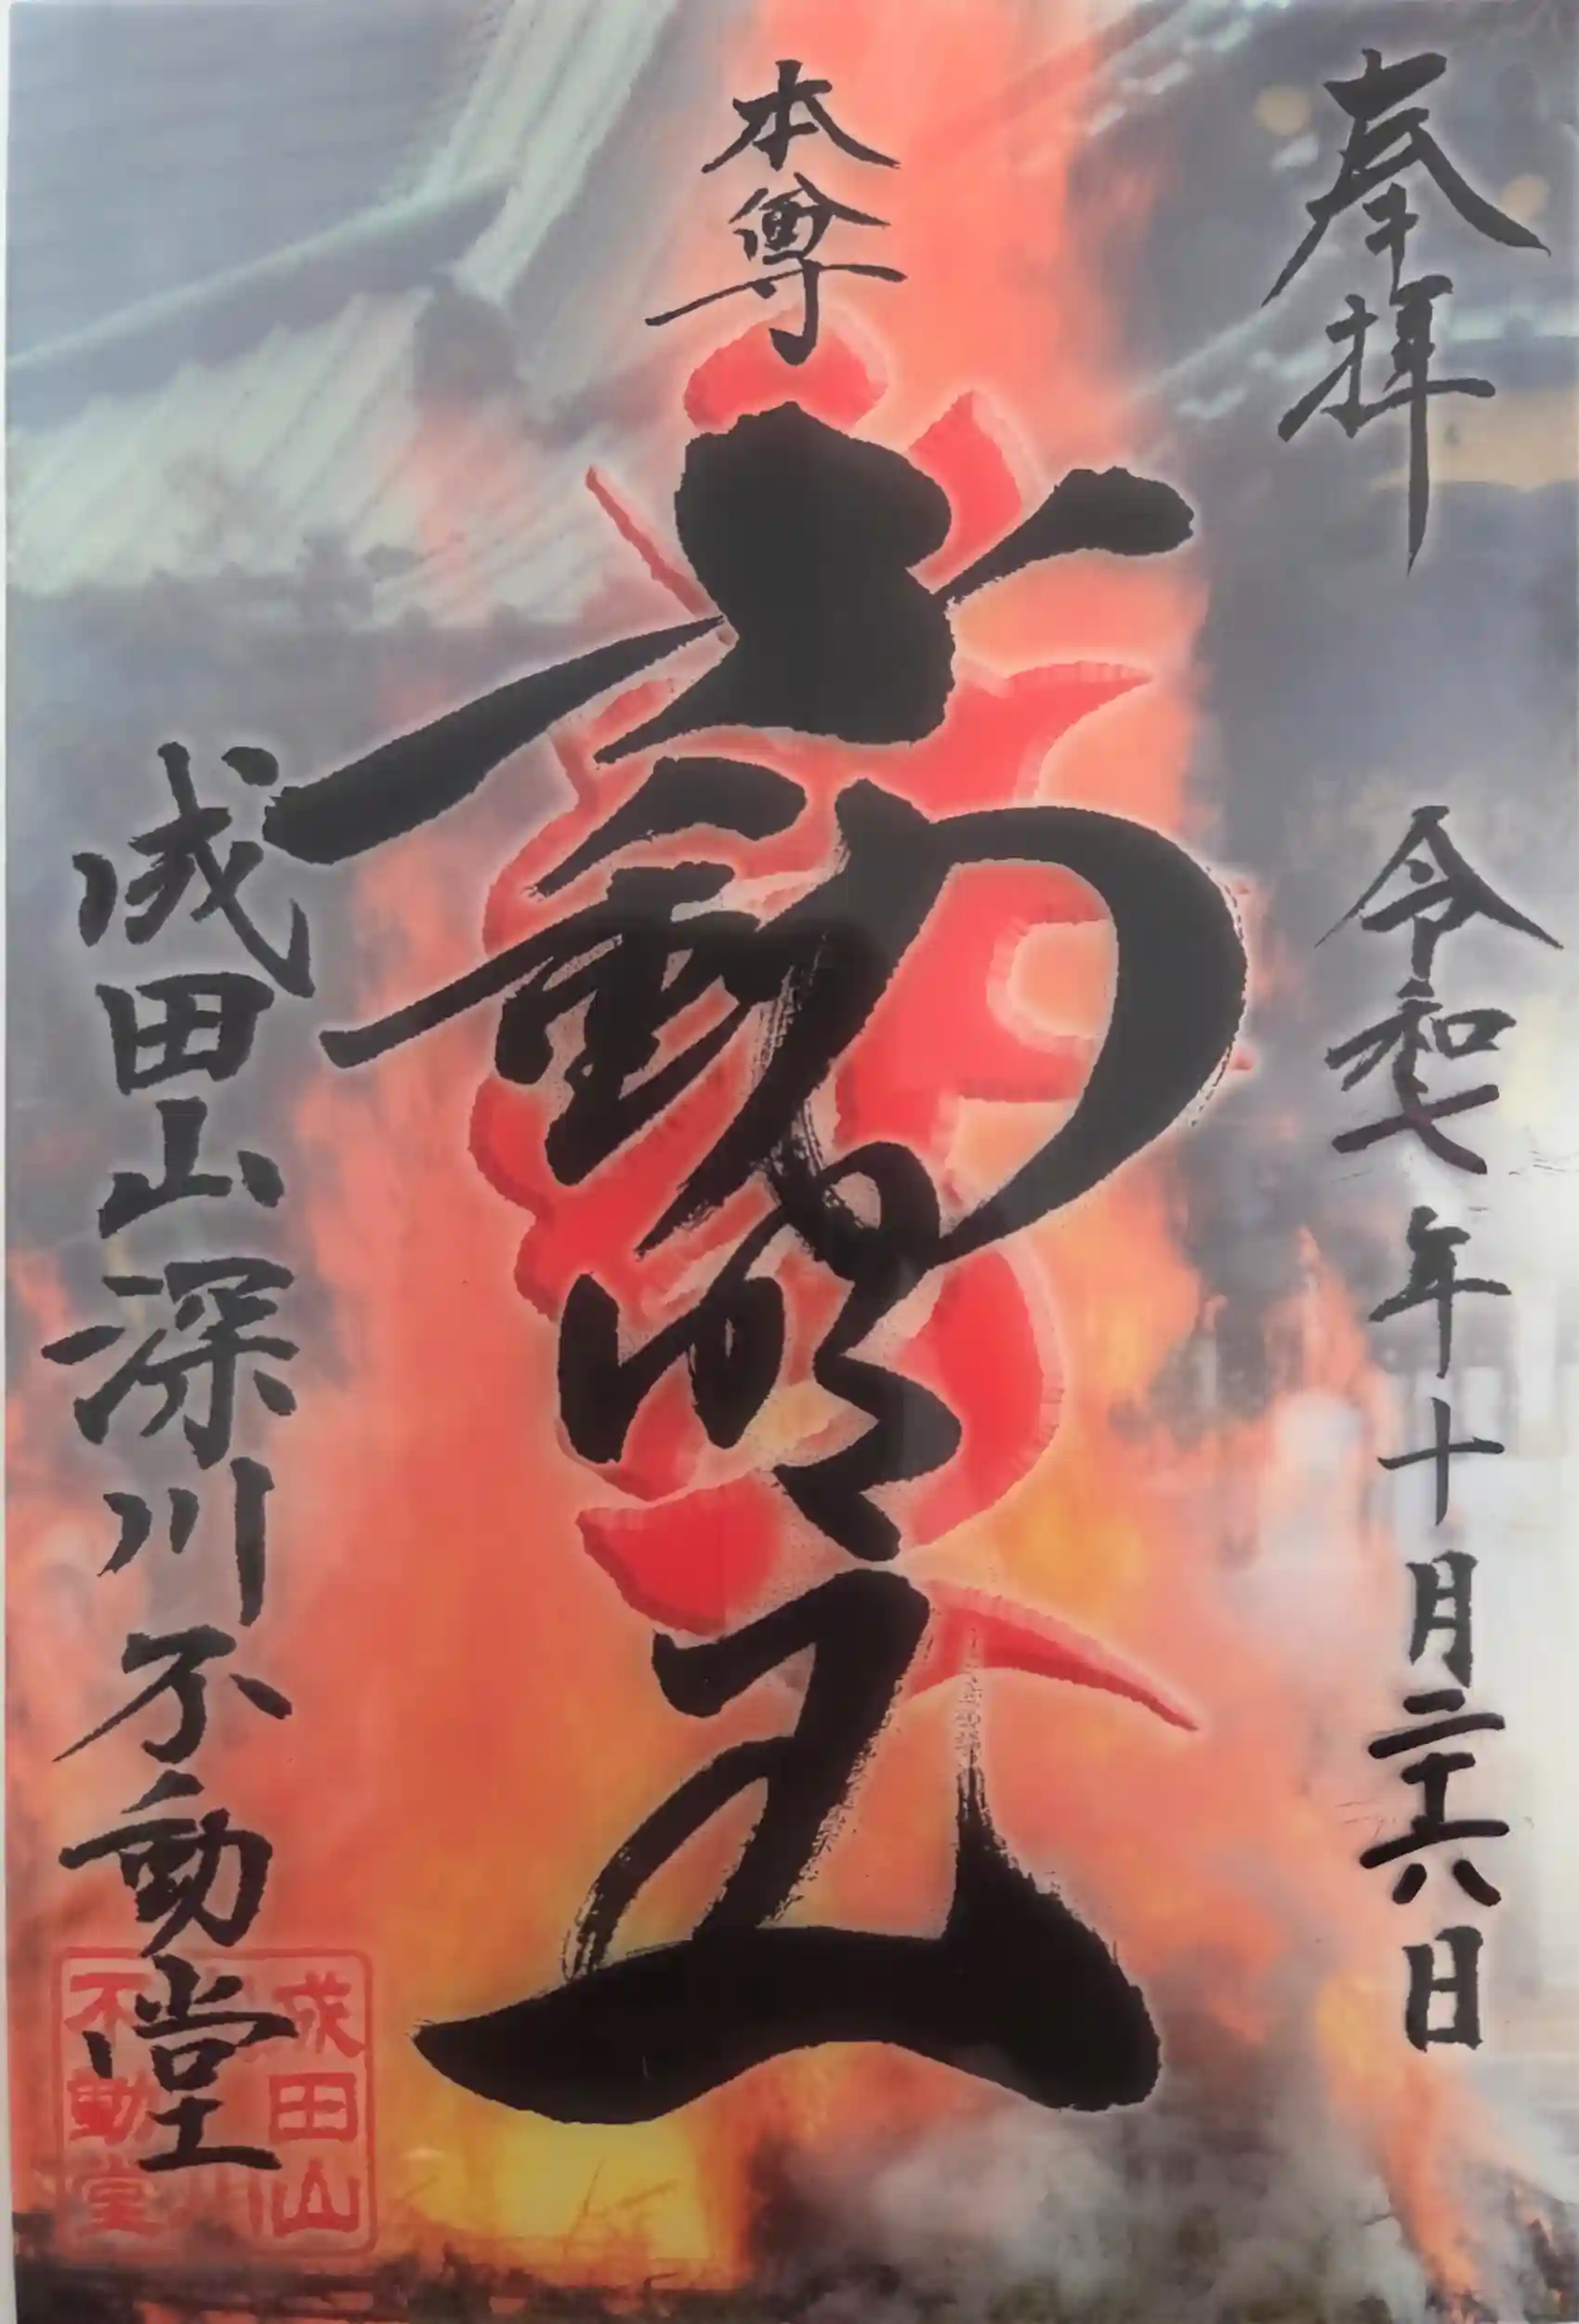 奉拝
令和七年十月二十六日
本尊
不動明王
成田山深川不動堂
成田山
不動堂